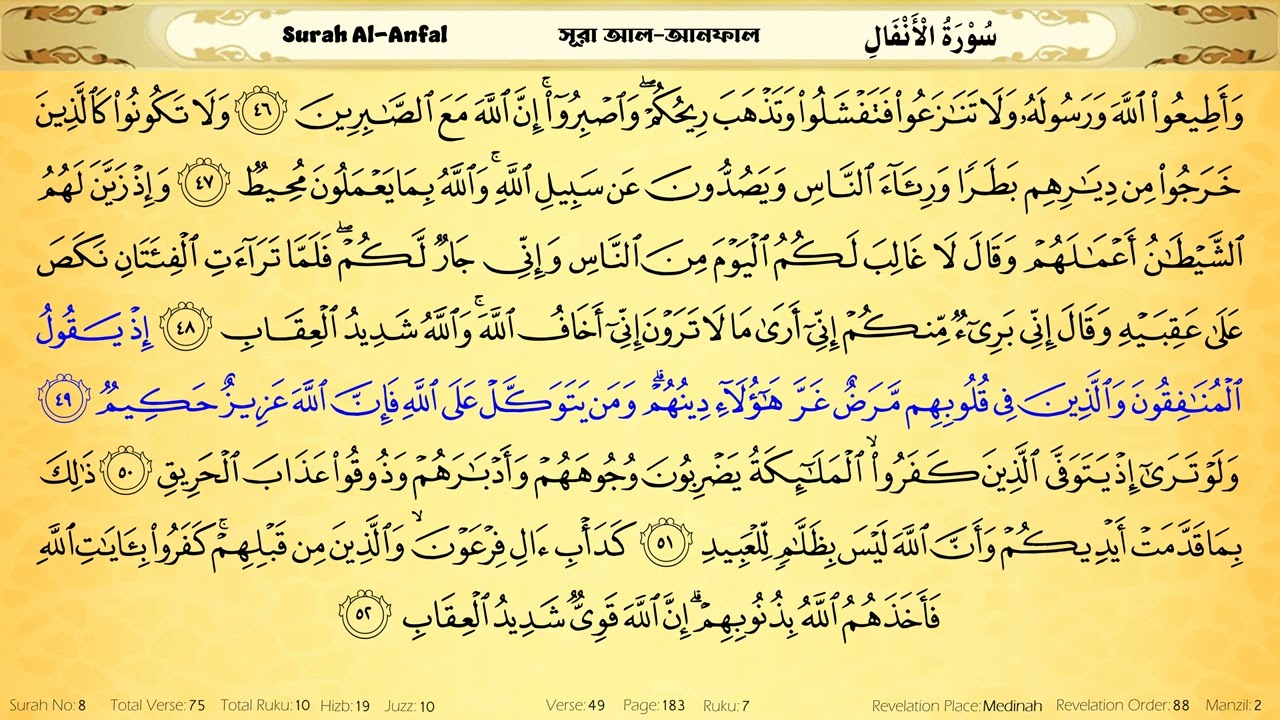 Surah Al-Anfal সূরা আল-আনফাল سُوْرَةُ الْأَنْفَالِ
وَأَطِيعُوا۟ ٱللَّهَ وَرَسُولَهُۥ وَلَا تَنَـٰزَعُوا۟ فَتَفْشَلُوا۟ وَتَذْهَبَ رِيحُكُمْ ۖ وَٱصْبِرُوٓا۟ ۚ إِنَّ ٱللَّهَ مَعَ ٱلصَّـٰبِرِينَ ٤٦ وَلَا تَكُونُوا۟ كَٱلَّذِينَ
خَرَجُوا۟ مِن دِيَـٰرِهِم بَطَرًا وَرِئَآءَ ٱلنَّاسِ وَيَصُدُّونَ عَن سَبِيلِ ٱللَّهِ ۚ وَٱللَّهُ بِمَا يَعْمَلُونَ مُحِيطٌ ٤٧ وَإِذْ زَيَّنَ لَهُمُ
ٱلشَّيْطَـٰنُ أَعْمَـٰلَهُمْ وَقَالَ لَا غَالِبَ لَكُمُ ٱلْيَوْمَ مِنَ ٱلنَّاسِ وَإِنِّى جَارٌ لَّكُمْ ۖ فَلَمَّا تَرَآءَتِ ٱلْفِئَتَانِ نَكَصَ
عَلَىٰ عَقِبَيْهِ وَقَالَ إِنِّى بَرِىٓءٌ مِّنكُمْ إِنِّىٓ أَرَىٰ مَا لَا تَرَوْنَ إِنِّىٓ أَخَافُ ٱللَّهَ ۚ وَٱللَّهُ شَدِيدُ ٱلْعِقَابِ ٤٨ إِذْ يَقُولُ
ٱلْمُنَـٰفِقُونَ وَٱلَّذِينَ فِى قُلُوبِهِم مَّرَضٌ غَرَّ هَـٰٓؤُلَآءِ دِينُهُمْ ۗ وَمَن يَتَوَكَّلْ عَلَى ٱللَّهِ فَإِنَّ ٱللَّهَ عَزِيزٌ حَكِيمٌ ٤٩
وَلَوْ تَرَىٰٓ إِذْ يَتَوَفَّى ٱلَّذِينَ كَفَرُوا۟ ۙ ٱلْمَلَـٰٓئِكَةُ يَضْرِبُونَ وُجُوهَهُمْ وَأَدْبَـٰرَهُمْ وَذُوقُوا۟ عَذَابَ ٱلْحَرِيقِ ٥٠ ذَٰلِكَ
بِمَا قَدَّمَتْ أَيْدِيكُمْ وَأَنَّ ٱللَّهَ لَيْسَ بِظَلَّـٰمٍ لِّلْعَبِيدِ ٥١ كَدَأْبِ ءَالِ فِرْعَوْنَ ۙ وَٱلَّذِينَ مِن قَبْلِهِمْ ۚ كَفَرُوا۟ بِـَٔايَـٰتِ ٱللَّهِ
فَأَخَذَهُمُ ٱللَّهُ بِذُنُوبِهِمْ ۗ إِنَّ ٱللَّهَ قَوِىٌّ شَدِيدُ ٱلْعِقَابِ ٥٢
Surah No: 8 Total Verse: 75 Total Ruku: 10 Hizb: 19 Juzz: 10 Verse: 49 Page: 183 Ruku: 7 Revelation Place: Medinah Revelation Order: 88 Manzil: 2